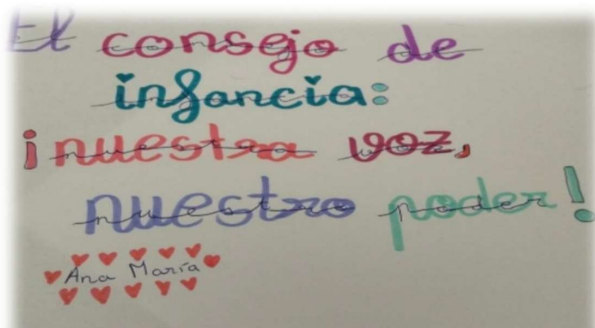 El consejo de
infancia:
¡nuestra voz,
nuestro poder!
Ana María